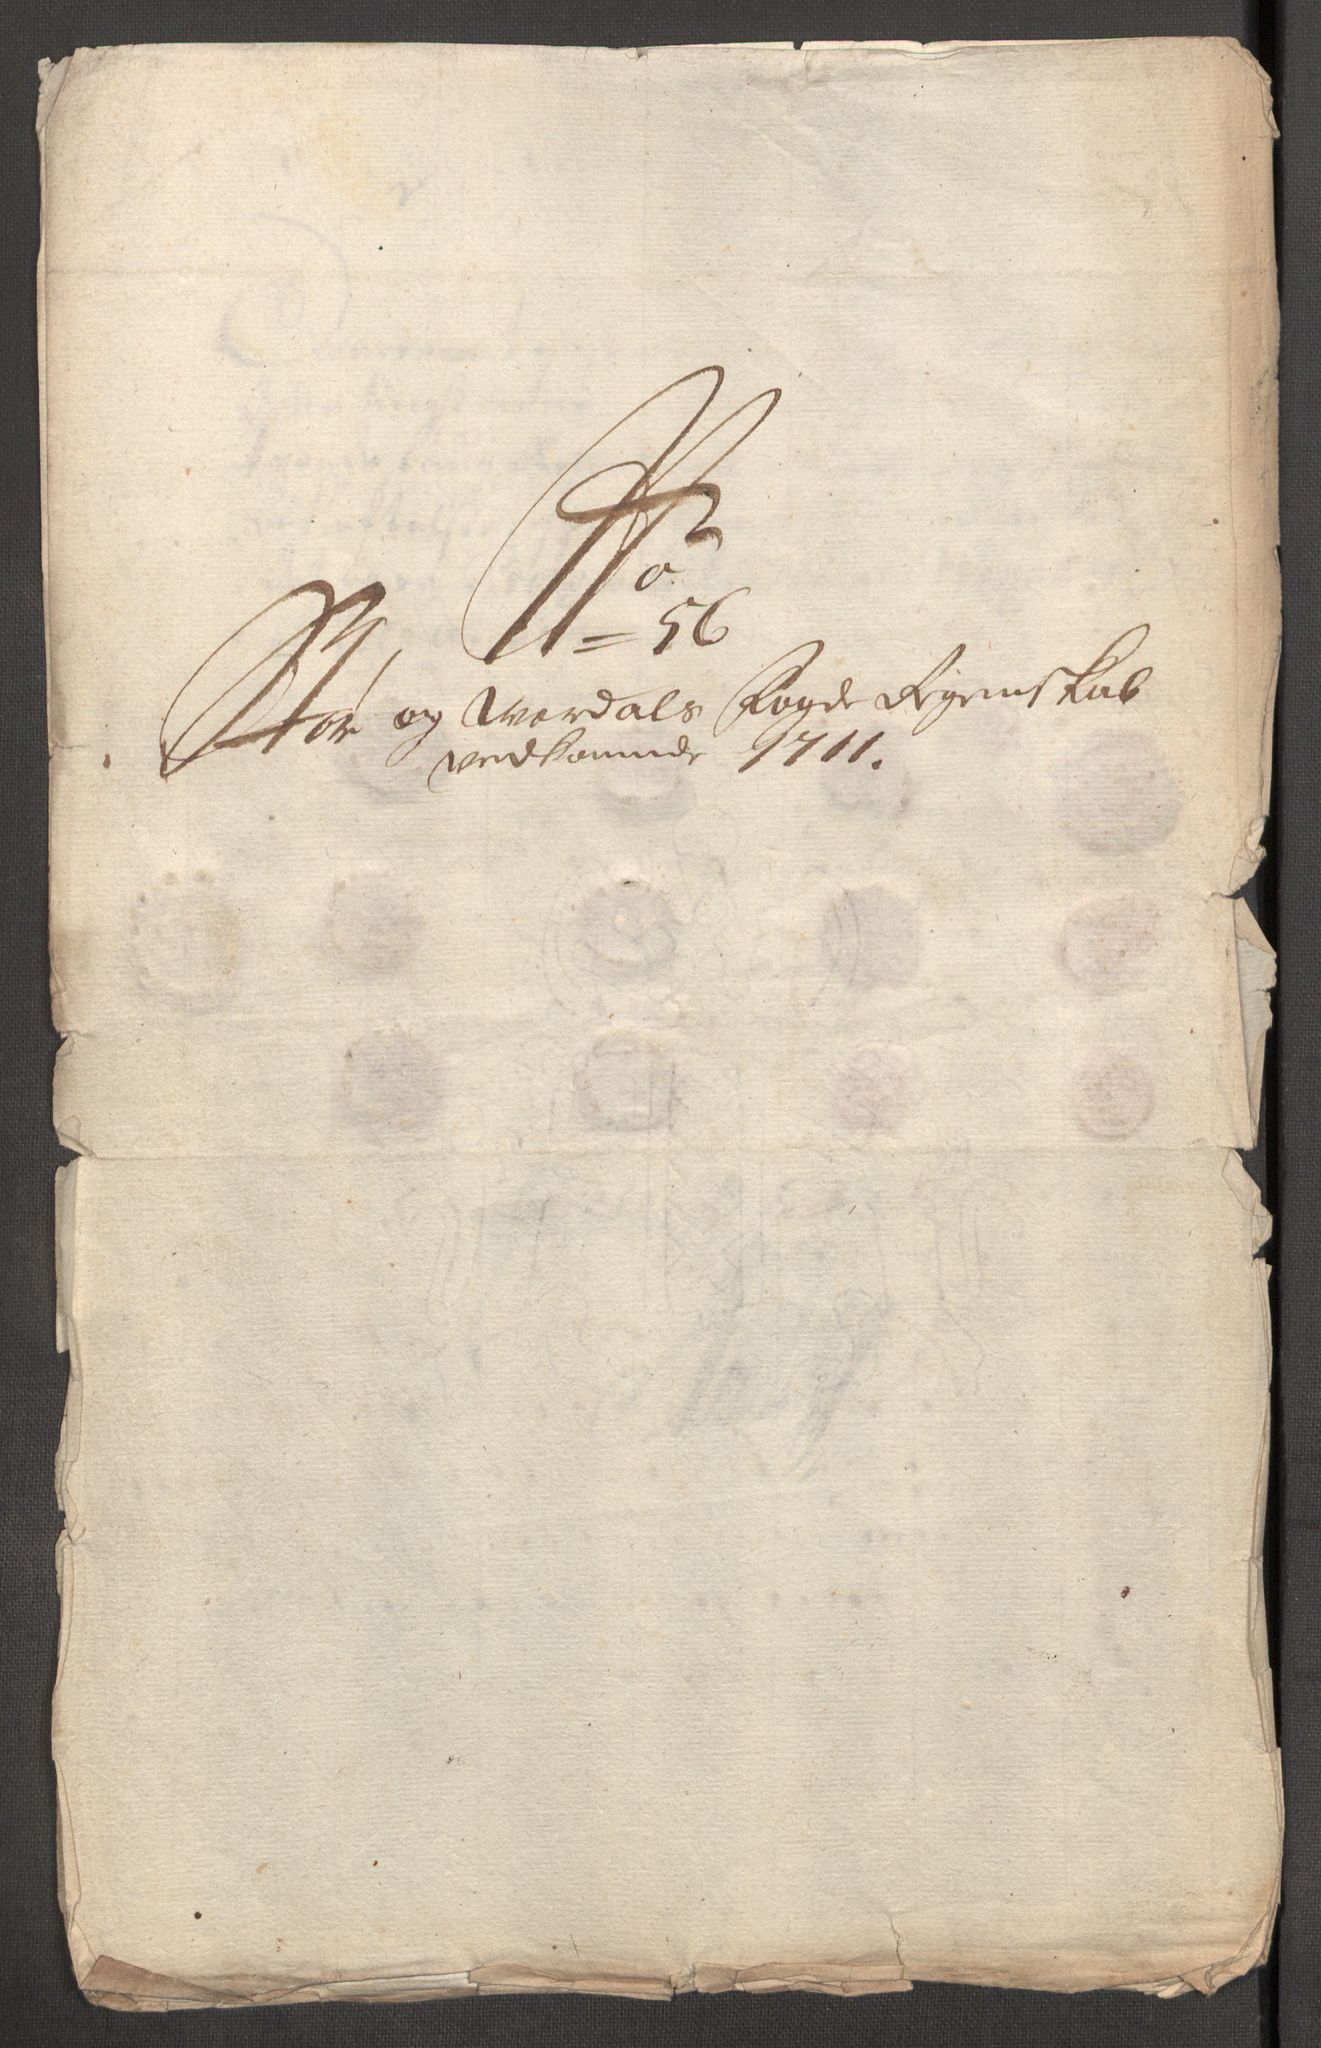 No
= 56
Stør og Werdals Fogde Regenskab
vedkommde 1711.